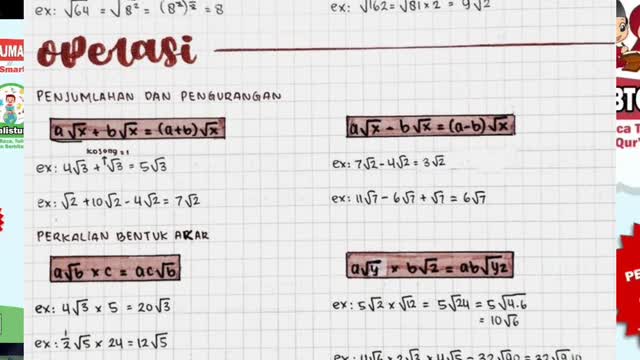 ex: √64 = √8² = (8²)^½ = 8
ex: √162 = √81×2 = 9√2
operasi
PENJUMLAHAN DAN PENGURANGAN
a√x + b√x = (a+b)√x
a√x - b√x = (a-b)√x
kosong = 1
ex: 4√3 + √3 = 5√3
ex: 7√2 - 4√2 = 3√2
ex: √2 + 10√2 - 4√2 = 7√2
ex: 11√7 - 6√7 + √7 = 6√7
PERKALIAN BENTUK AKAR
a√b × c = ac√b
a√y × b√z = ab√yz
ex: 4√3 × 5 = 20√3
ex: 5√2 × √12 = 5√24 = 5√4.6
= 10√6
ex: ½√5 × 24 = 12√5